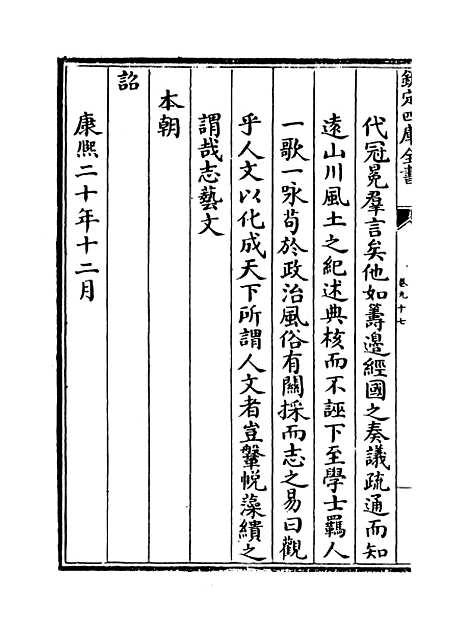 欽定四庫全書
卷九十七
代冠冕羣言矣他如籌邊經國之奏議疏通而知
遠山川風土之紀述典核而不誣下至學士羈人
一歌一咏苟於政治風俗有關採而志之易曰觀
乎人文以化成天下所謂人文者豈鞶帨藻繢之
謂哉志藝文
本朝
詔
康熙二十年十二月